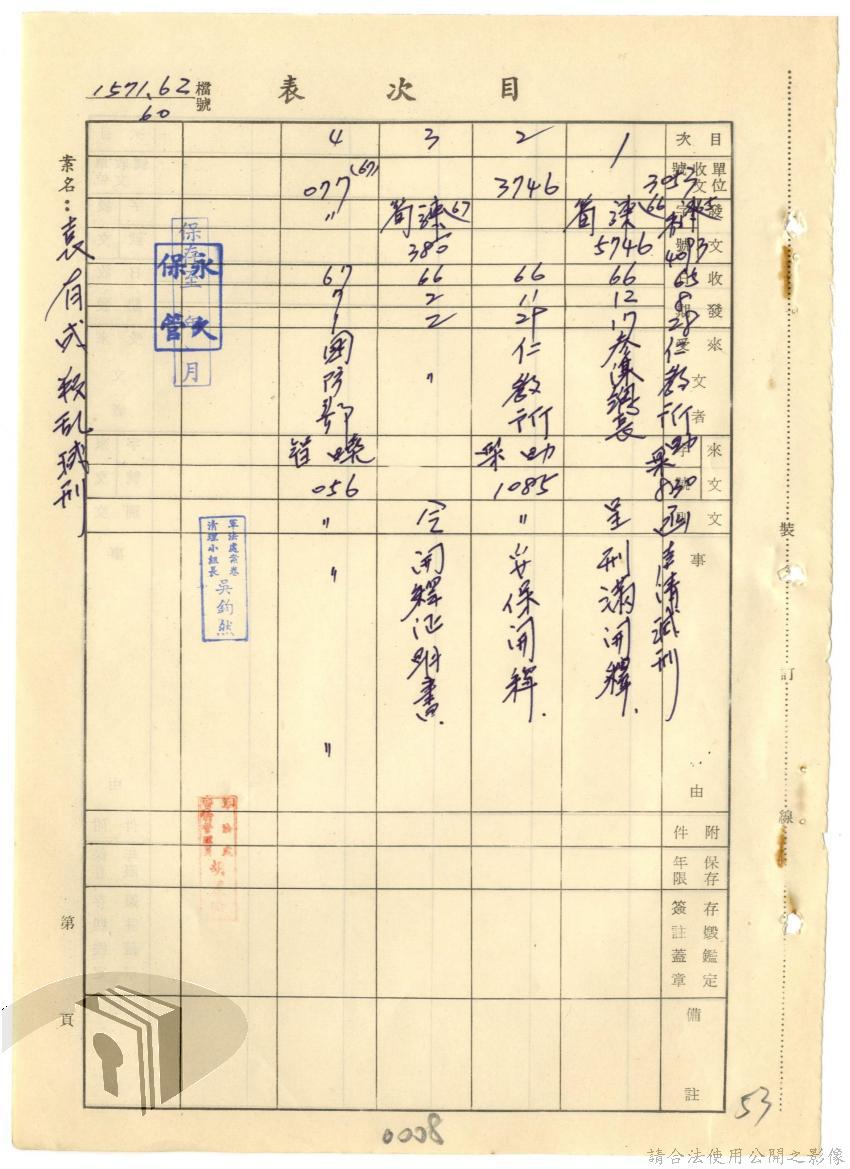 目次表
檔號
1571.62
60
案名：袁有成叛乱減刑
目次
單位收文號
發文字號
收發
來文者
來文字號
文別
事由
附件
保存年限
存燬鑑定簽註蓋章
備註
3053
4093
65
8
28
仁教所
830
函
袁清減刑
1
5746
66
12
17
呈
刑滿開釋.
2
3746
66
11
29
仁教所
1085
〃
交保開釋.
3
380
66
2
2
〃
令
開釋证明書.
4
077(67)
〃
67
7
1
國防部
056
〃
〃
〃
保存至 年 月
永久保管
軍法處案卷
清理小組長
吳鈞然
裝訂線
第
頁
53
0008
請合法使用公開之影像